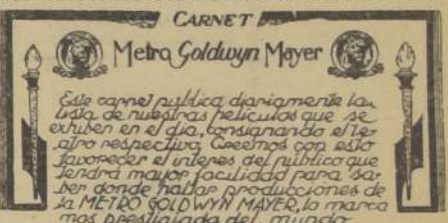 CARNET
Metro Goldwyn Mayer
Este carnet publica diariamente la
lista de nuestras peliculas que se
exhiben en el dia, consignando el te-
atro respectivo. Creemos con esto
favorecer el interes del publico que
tendrá mayor facilidad para sa-
ber donde hallar producciones de
LA METRO GOLDWYN MAYER, la marca
mas prestigiada del mundo